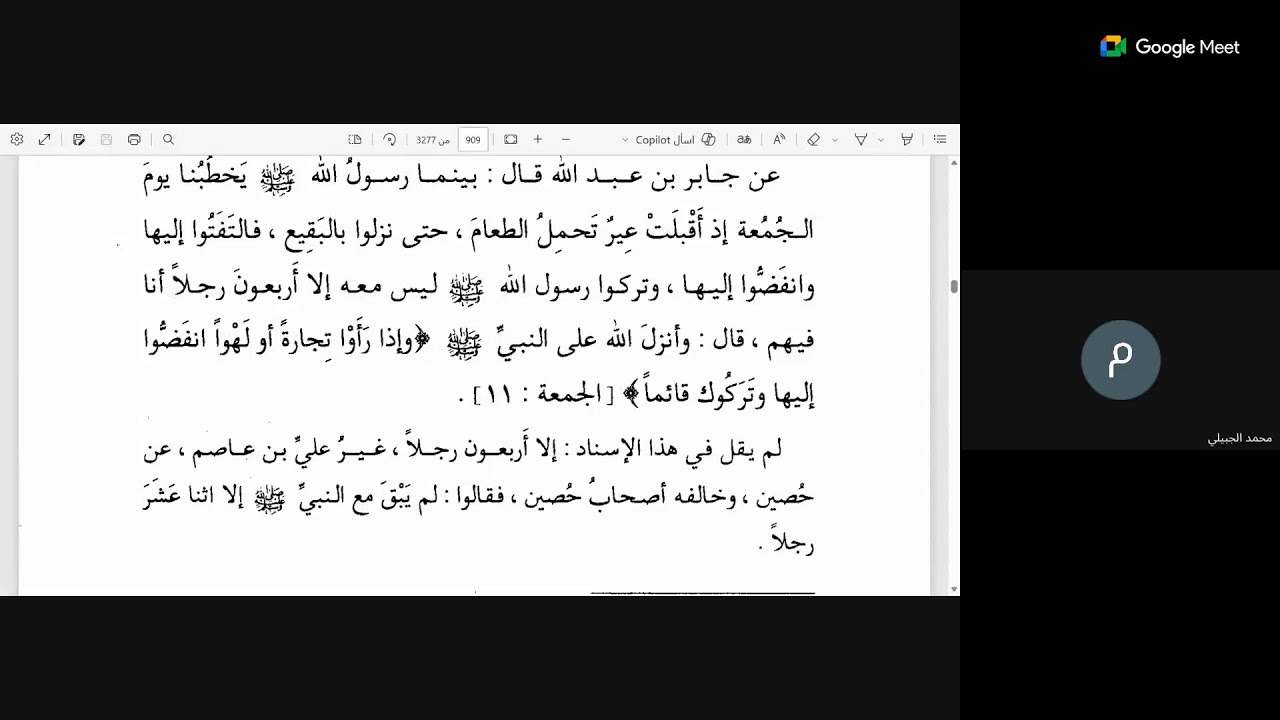 Google Meet
اسأل Copilot
909
من 3277
عن جابر بن عبد الله قال : بينما رسولُ الله ﷺ يَخطُبُنا يومَ
الجُمُعة إذ أَقْبلَتْ عِيرٌ تَحمِلُ الطعامَ ، حتى نزلوا بالبَقِيع ، فالتَفَتُوا إليها
وانفَضُّوا إليها ، وتركوا رسول الله ﷺ ليس معه إلا أَربعونَ رجلاً أنا
فيهم ، قال : وأنزلَ الله على النبيِّ ﷺ ﴿وإذا رَأَوْا تِجارةً أو لَهْواً انفَضُّوا
إليها وتَرَكُوك قائماً﴾ [الجمعة : ١١] .
لم يقل في هذا الإسناد : إلا أَربعون رجلاً ، غيرُ عليِّ بن عاصم ، عن
حُصين ، وخالفه أصحابُ حُصين ، فقالوا : لم يَبْقَ مع النبيِّ ﷺ إلا اثنا عَشَرَ
رجلاً .
م
محمد الجبيلي